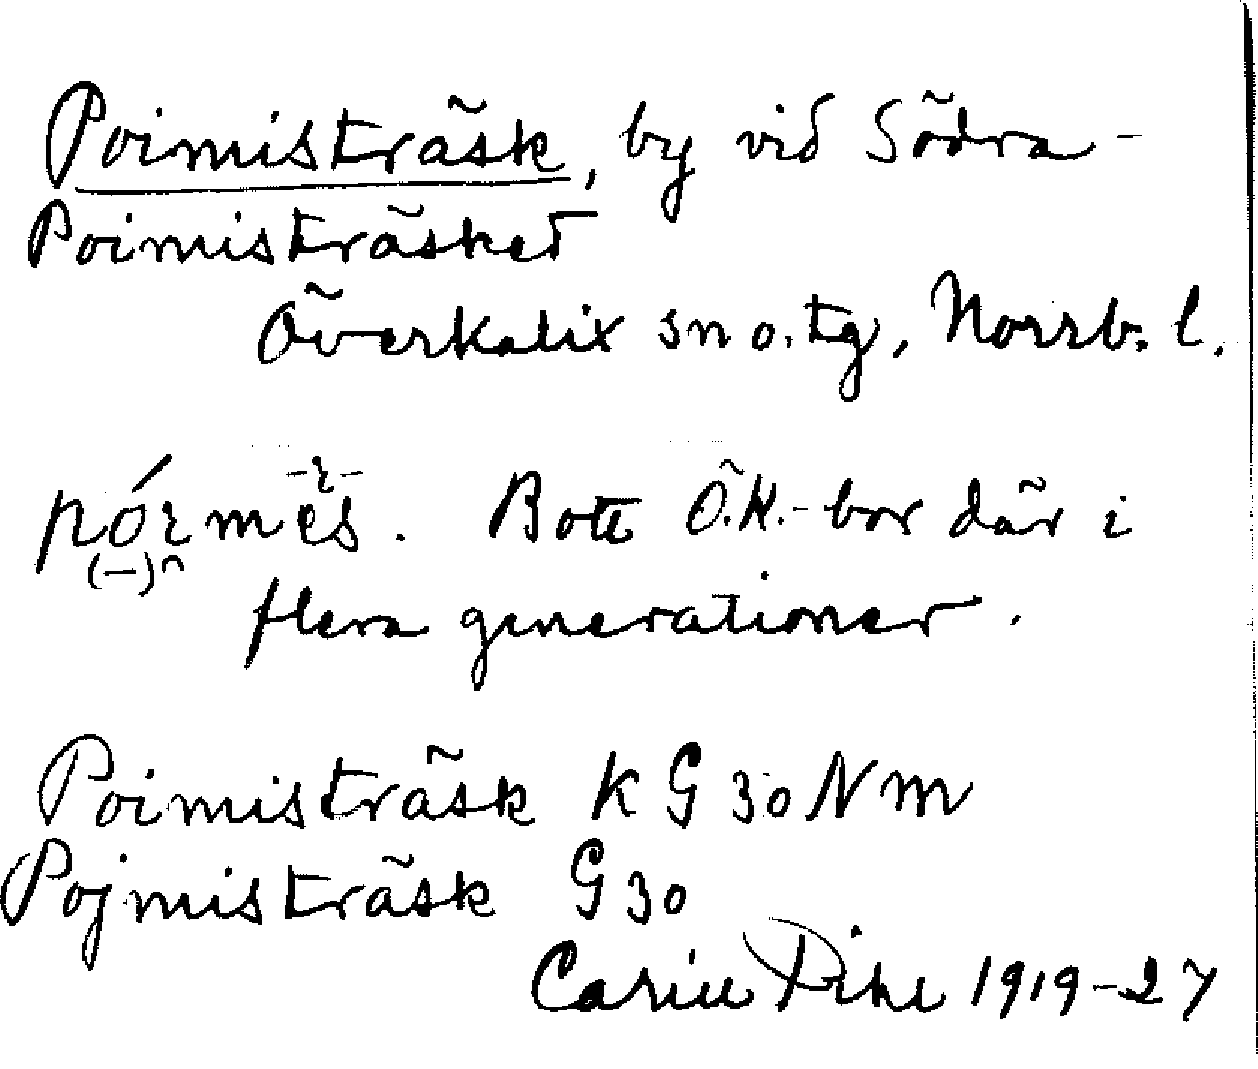 Poimisträsk, by vid Södra-
Poimisträsket
Överkalix sn o. tg, Norrb. l.
Bott Ö.K.-bor där i
flera generationer.
Poimisträsk K G 30 N m
Pojmisträsk G 30
Carin Pihl 1919-27